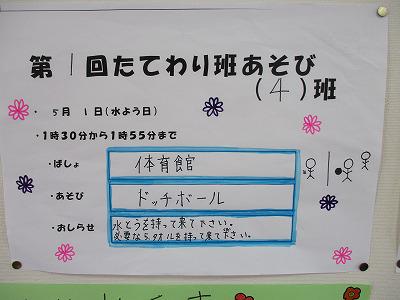 第1回たてわり班あそび
(4)班
・5月1日(水よう日)
・1時30分から1時55分まで
・ばしょ 体育館
・あそび ドッチボール
・おしらせ 水とうを持って果て下さい。
必要なら、タオルを持って果て下さい。